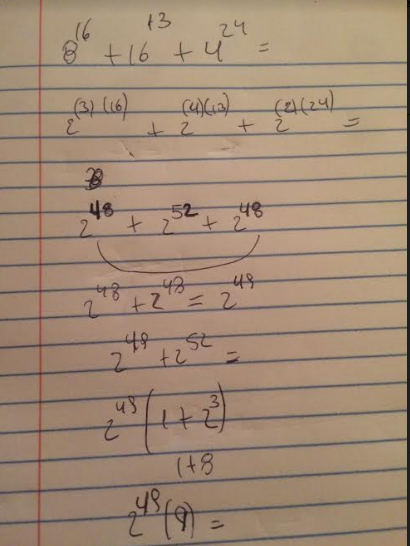 8^16 + 16^13 + 4^24 =
2^(3)(16) + 2^(4)(13) + 2^(2)(24) =
2^48 + 2^52 + 2^48
2^48 + 2^48 = 2^49
2^49 + 2^52 =
2^49 (1 + 2^3)
1+8
2^49 (9) =